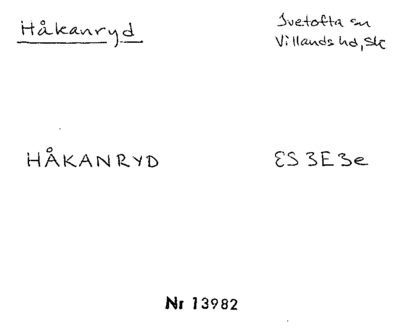 Håkanryd
Ivetofta sn
Villands hd, Sk
HÅKANRYD
ES 3E3e
Nr 13982